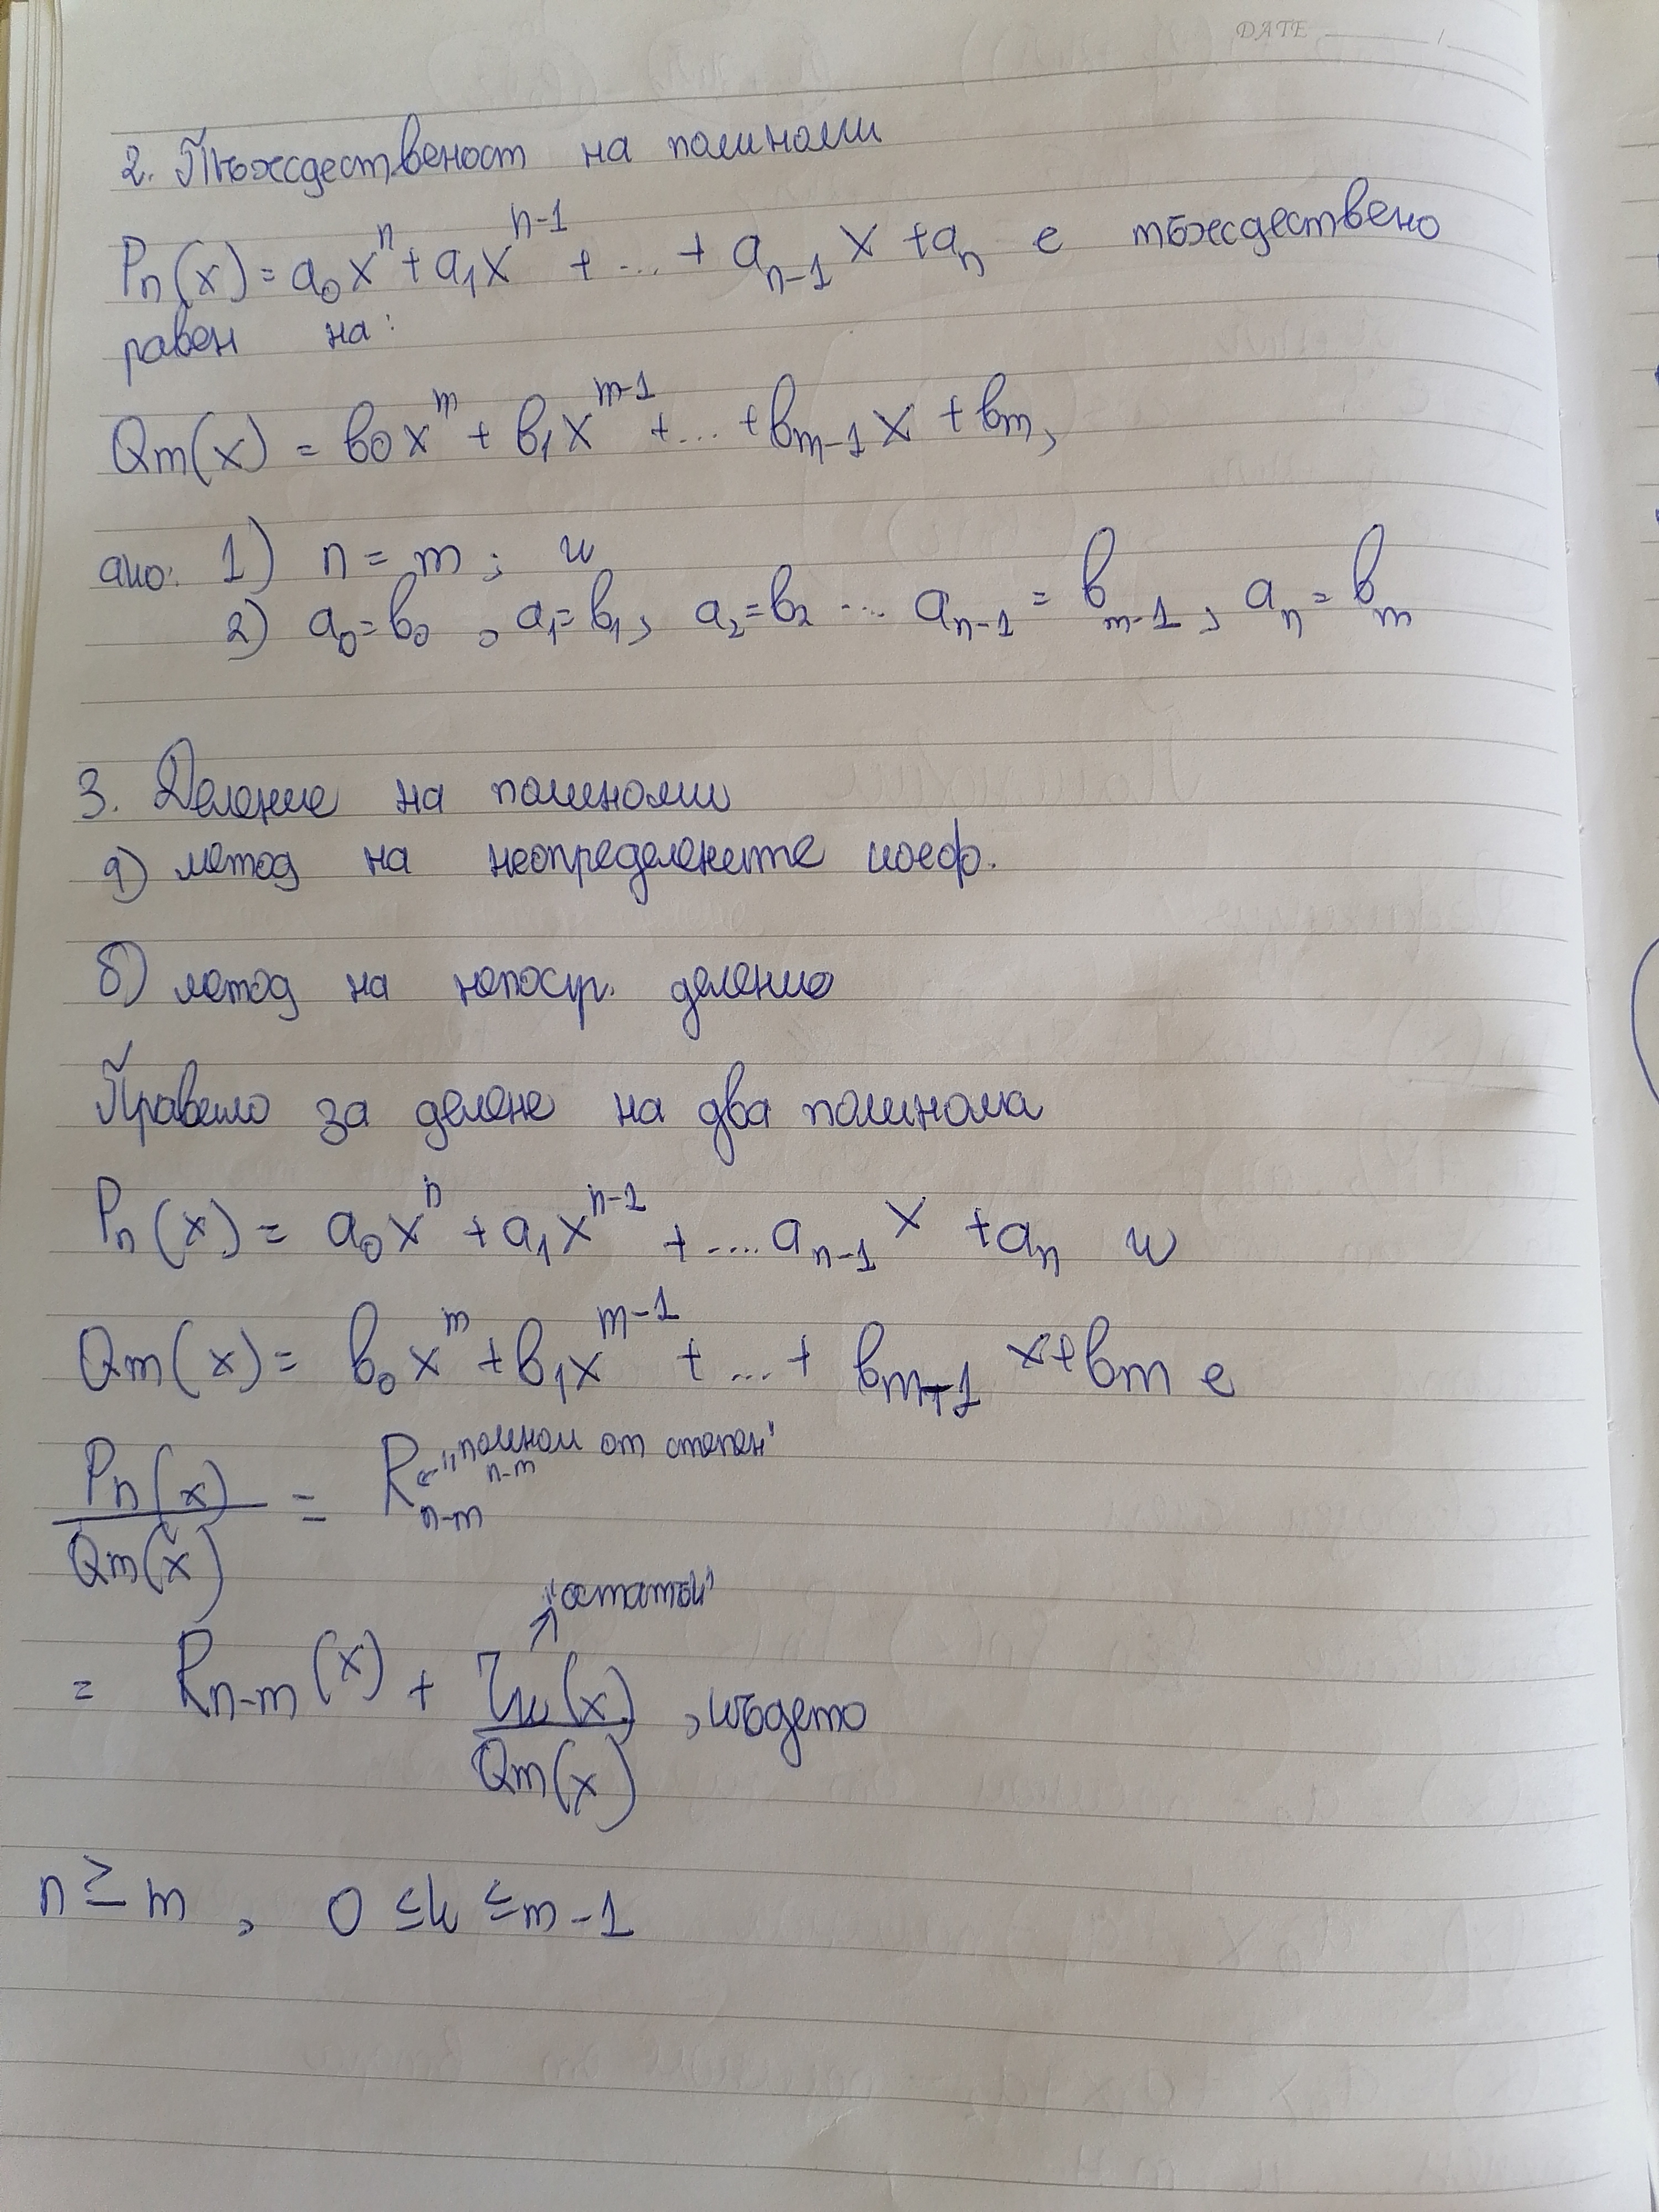 DATE
2. Тъждественост на полиноми
Pn(x) = a₀xⁿ + a₁xⁿ⁻¹ + ... + aₙ₋₁ x + aₙ е тъждествено
равен на:
Qm(x) = b₀xᵐ + b₁xᵐ⁻¹ + ... + bₘ₋₁x + bₘ,
ако: 1) n = m ; и
2) a₀=b₀ , a₁=b₁, a₂=b₂ ... aₙ₋₁ = bₘ₋₁ , aₙ = bₘ
3. Деление на полиноми
а) метод на неопределените коеф.
б) метод на непоср. деление
Правило за делене на два полинома
Pn(x) = a₀xⁿ + a₁xⁿ⁻¹ + .... aₙ₋₁ x + aₙ и
Qm(x) = b₀xᵐ + b₁xᵐ⁻¹ + ... + bₘ₋₁ x + bₘ е
Pn(x)/Qm(x) = Rₙ₋ₘ ← "полином от степен n-m"
"остатък"
= Rₙ₋ₘ(x) + rₖ(x)/Qm(x) , където
n ≥ m , 0 ≤ k ≤ m-1